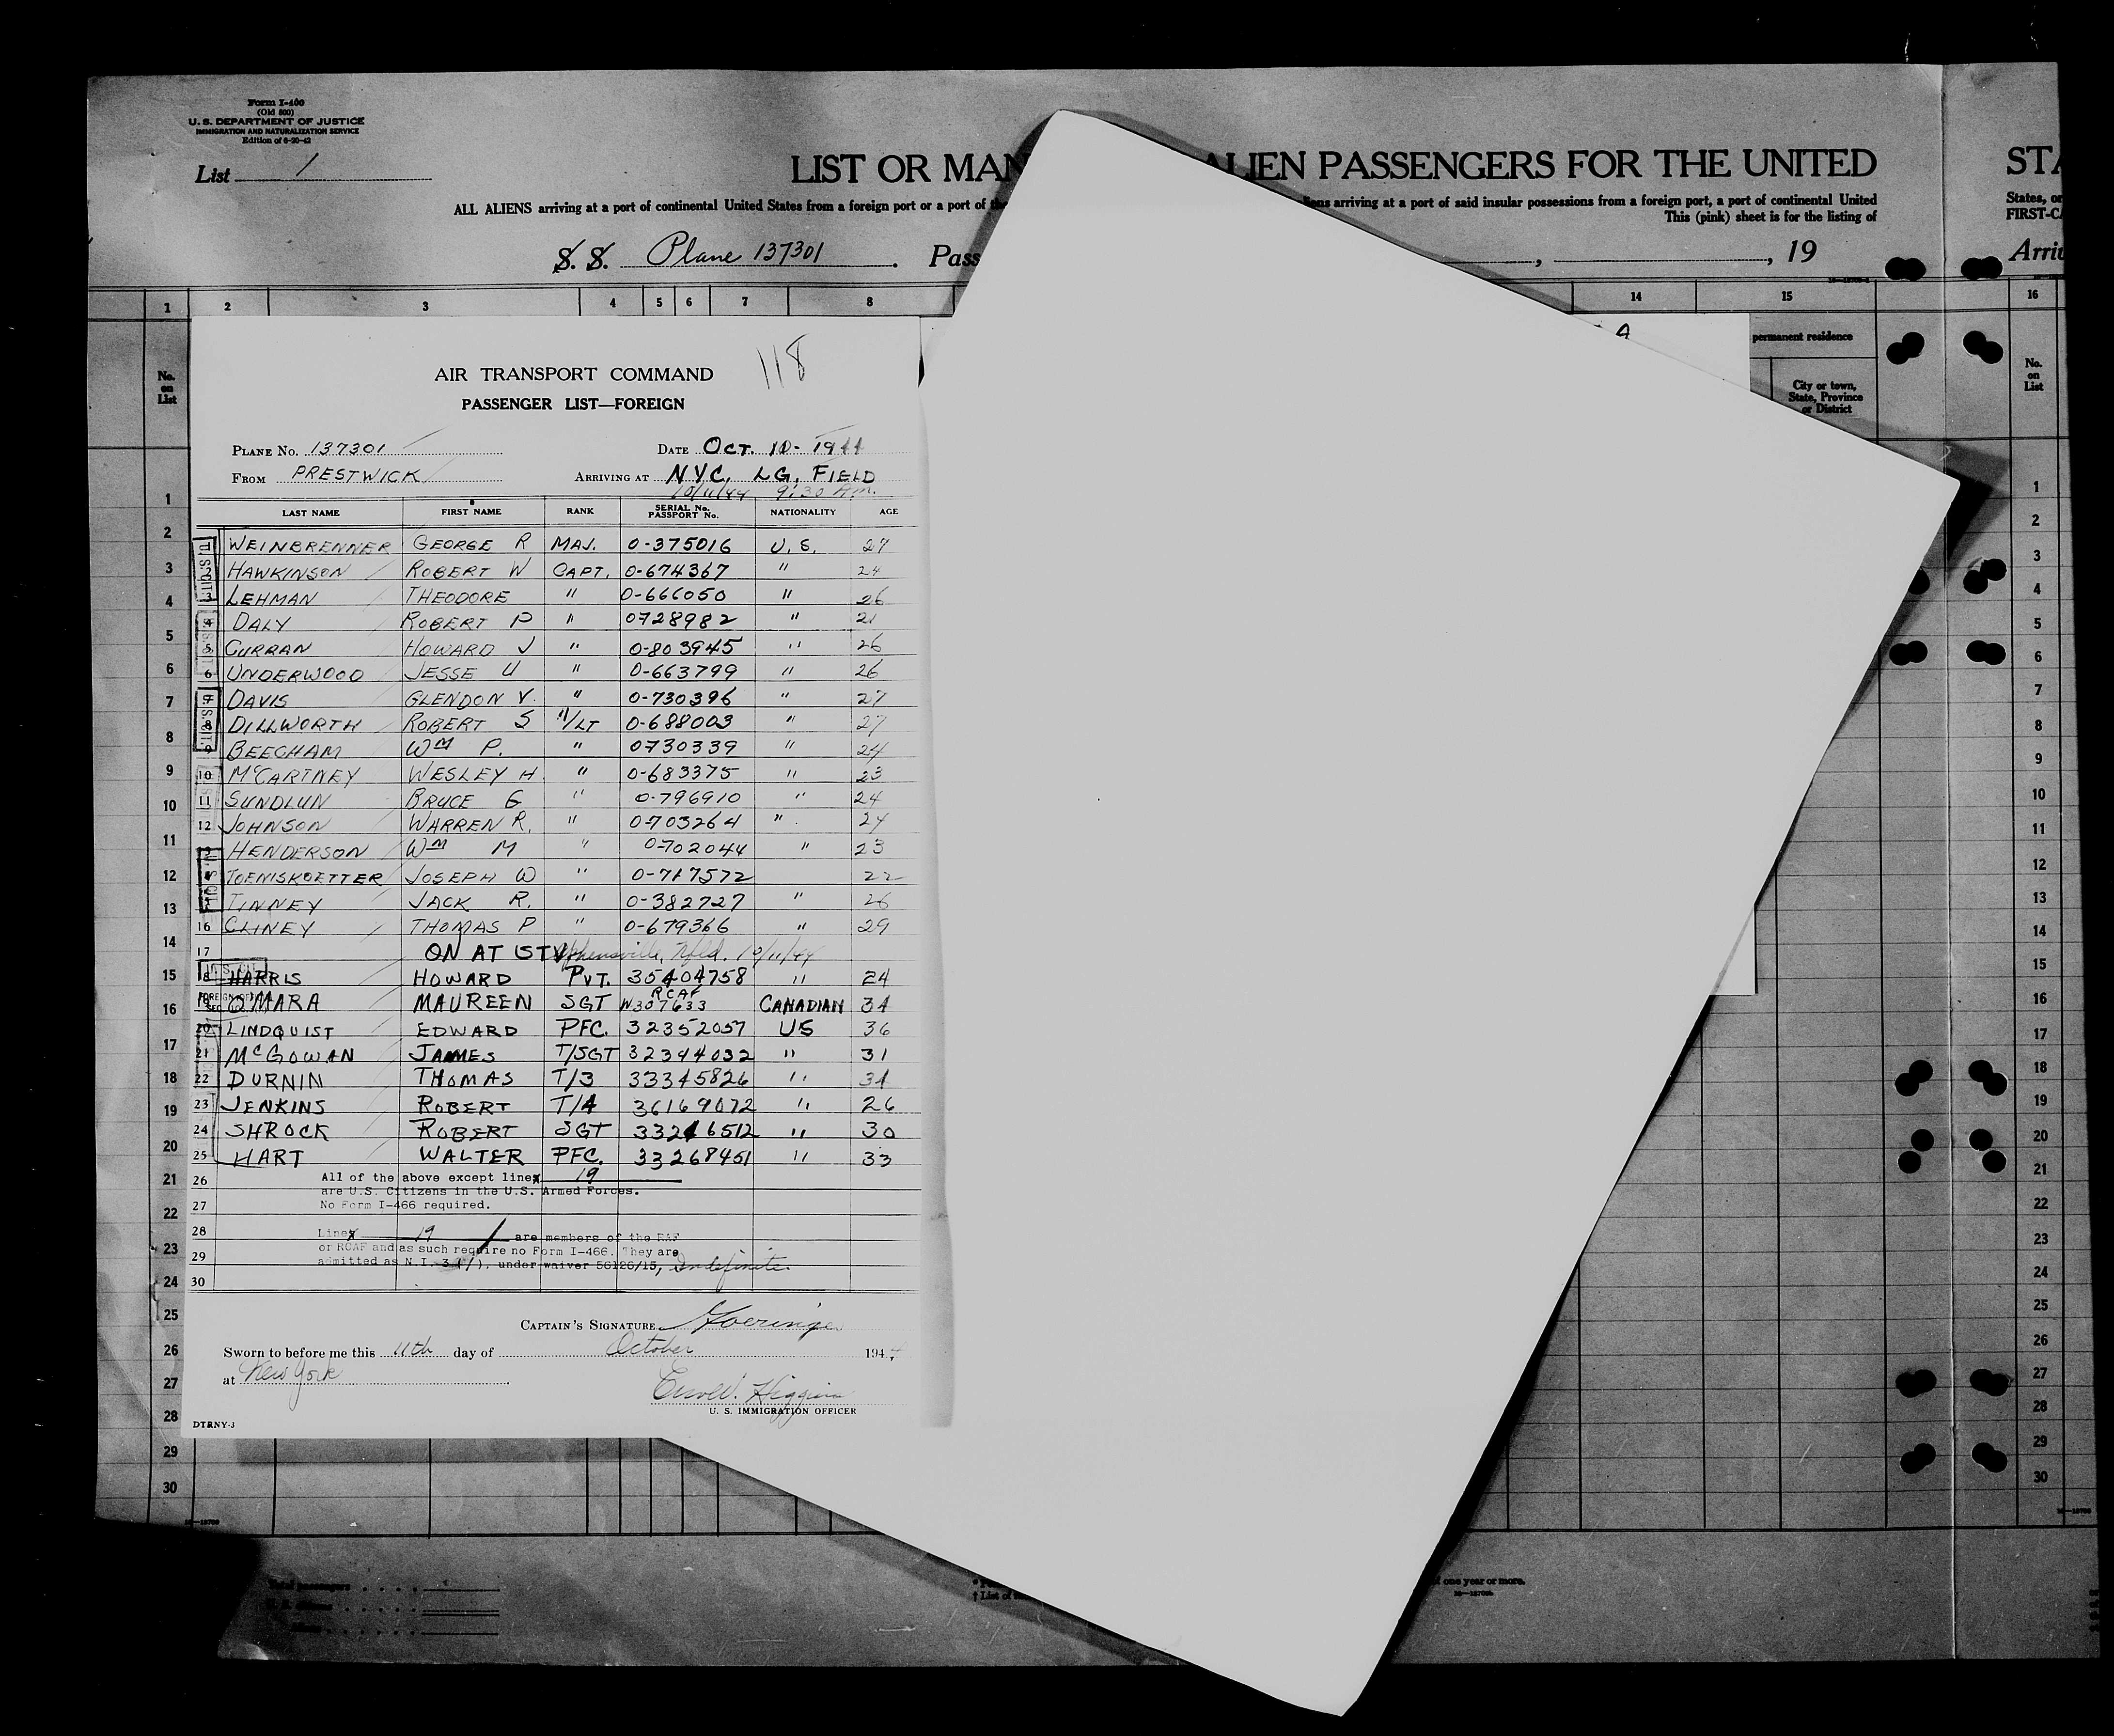 Form I-400
(Old 500)
U. S. DEPARTMENT OF JUSTICE
IMMIGRATION AND NATURALIZATION SERVICE
Edition of 6-20-42
List 1
LIST OR MAN ALIEN PASSENGERS FOR THE UNITED STA
ALL ALIENS arriving at a port of continental United States from a foreign port or a port of the arriving at a port of said insular possessions from a foreign port, a port of continental United States, or
This (pink) sheet is for the listing of FIRST-CA
S. S. Plane 137301. Pass , , 19 Arriv
1 2 3 4 5 6 7 8 14 15 16
No. on List
permanent residence
City or town, State, Province or District
No. on List
AIR TRANSPORT COMMAND 118
PASSENGER LIST—FOREIGN
PLANE No. 137301 DATE OCT. 10- 1944
FROM PRESTWICK ARRIVING AT NYC, LG, FIELD
10/11/44 9:30 Am.
LAST NAME FIRST NAME RANK SERIAL No. PASSPORT No. NATIONALITY AGE
WEINBRENNER GEORGE R MAJ. 0-375016 U.S. 27
2 HAWKINSON ROBERT W CAPT. 0-674367 " 24
3 LEHMAN THEODORE " 0-666050 " 26
4 DALY ROBERT P " 0728982 " 21
5 CURRAN HOWARD J " 0-803945 " 26
6 UNDERWOOD JESSE U " 0-663799 " 26
7 DAVIS GLENDON V. " 0-730396 " 27
8 DILLWORTH ROBERT S 1/LT 0-688003 " 27
9 BEECHAM WM P. " 0730339 " 24
10 McCARTNEY WESLEY H " 0-683375 " 23
11 SUNDLUN BRUCE G " 0-796910 " 24
12 JOHNSON WARREN R. " 0703264 " 24
HENDERSON WM M " 0-702044 " 23
TOENISKOETTER JOSEPH W " 0-717572 22
TINNEY JACK R. " 0-382727 " 26
16 CLINEY THOMAS P " 0-679366 " 29
17 ON AT STephensville, Nfld. 10/11/44
18 HARRIS HOWARD PVT. 35404758 " 24
19 O'MARA MAUREEN SGT RCAF W307633 CANADIAN 34
20 LINDQUIST EDWARD PFC. 32352057 US 36
21 McGOWAN JAMES T/SGT 32394032 " 31
22 DURNIN THOMAS T/3 33345826 " 34
23 JENKINS ROBERT T/4 36169072 " 26
24 SHROCK ROBERT SGT 33216512 " 30
25 HART WALTER PFC. 33268451 " 33
26 All of the above except line 19
are U.S. Citizens in the U.S. Armed Forces.
27 No Form I-466 required.
28 Line 19 are members of the RAF
or RCAF and as such require no Form I-466. They are
29 admitted as N.I. 3 (1), under waiver 56126/15, Indefinite.
30
CAPTAIN'S SIGNATURE
Sworn to before me this 11th day of October 194
at New York
Higgins
U. S. IMMIGRATION OFFICER
DTRNY-3
1
2
3
4
5
6
7
8
9
10
11
12
13
14
15
16
17
18
19
20
21
22
23
24
25
26
27
28
29
30
1
2
3
4
5
6
7
8
9
10
11
12
13
14
15
16
17
18
19
20
21
22
23
24
25
26
27
28
29
30
Total passengers
† List of
one year or more.